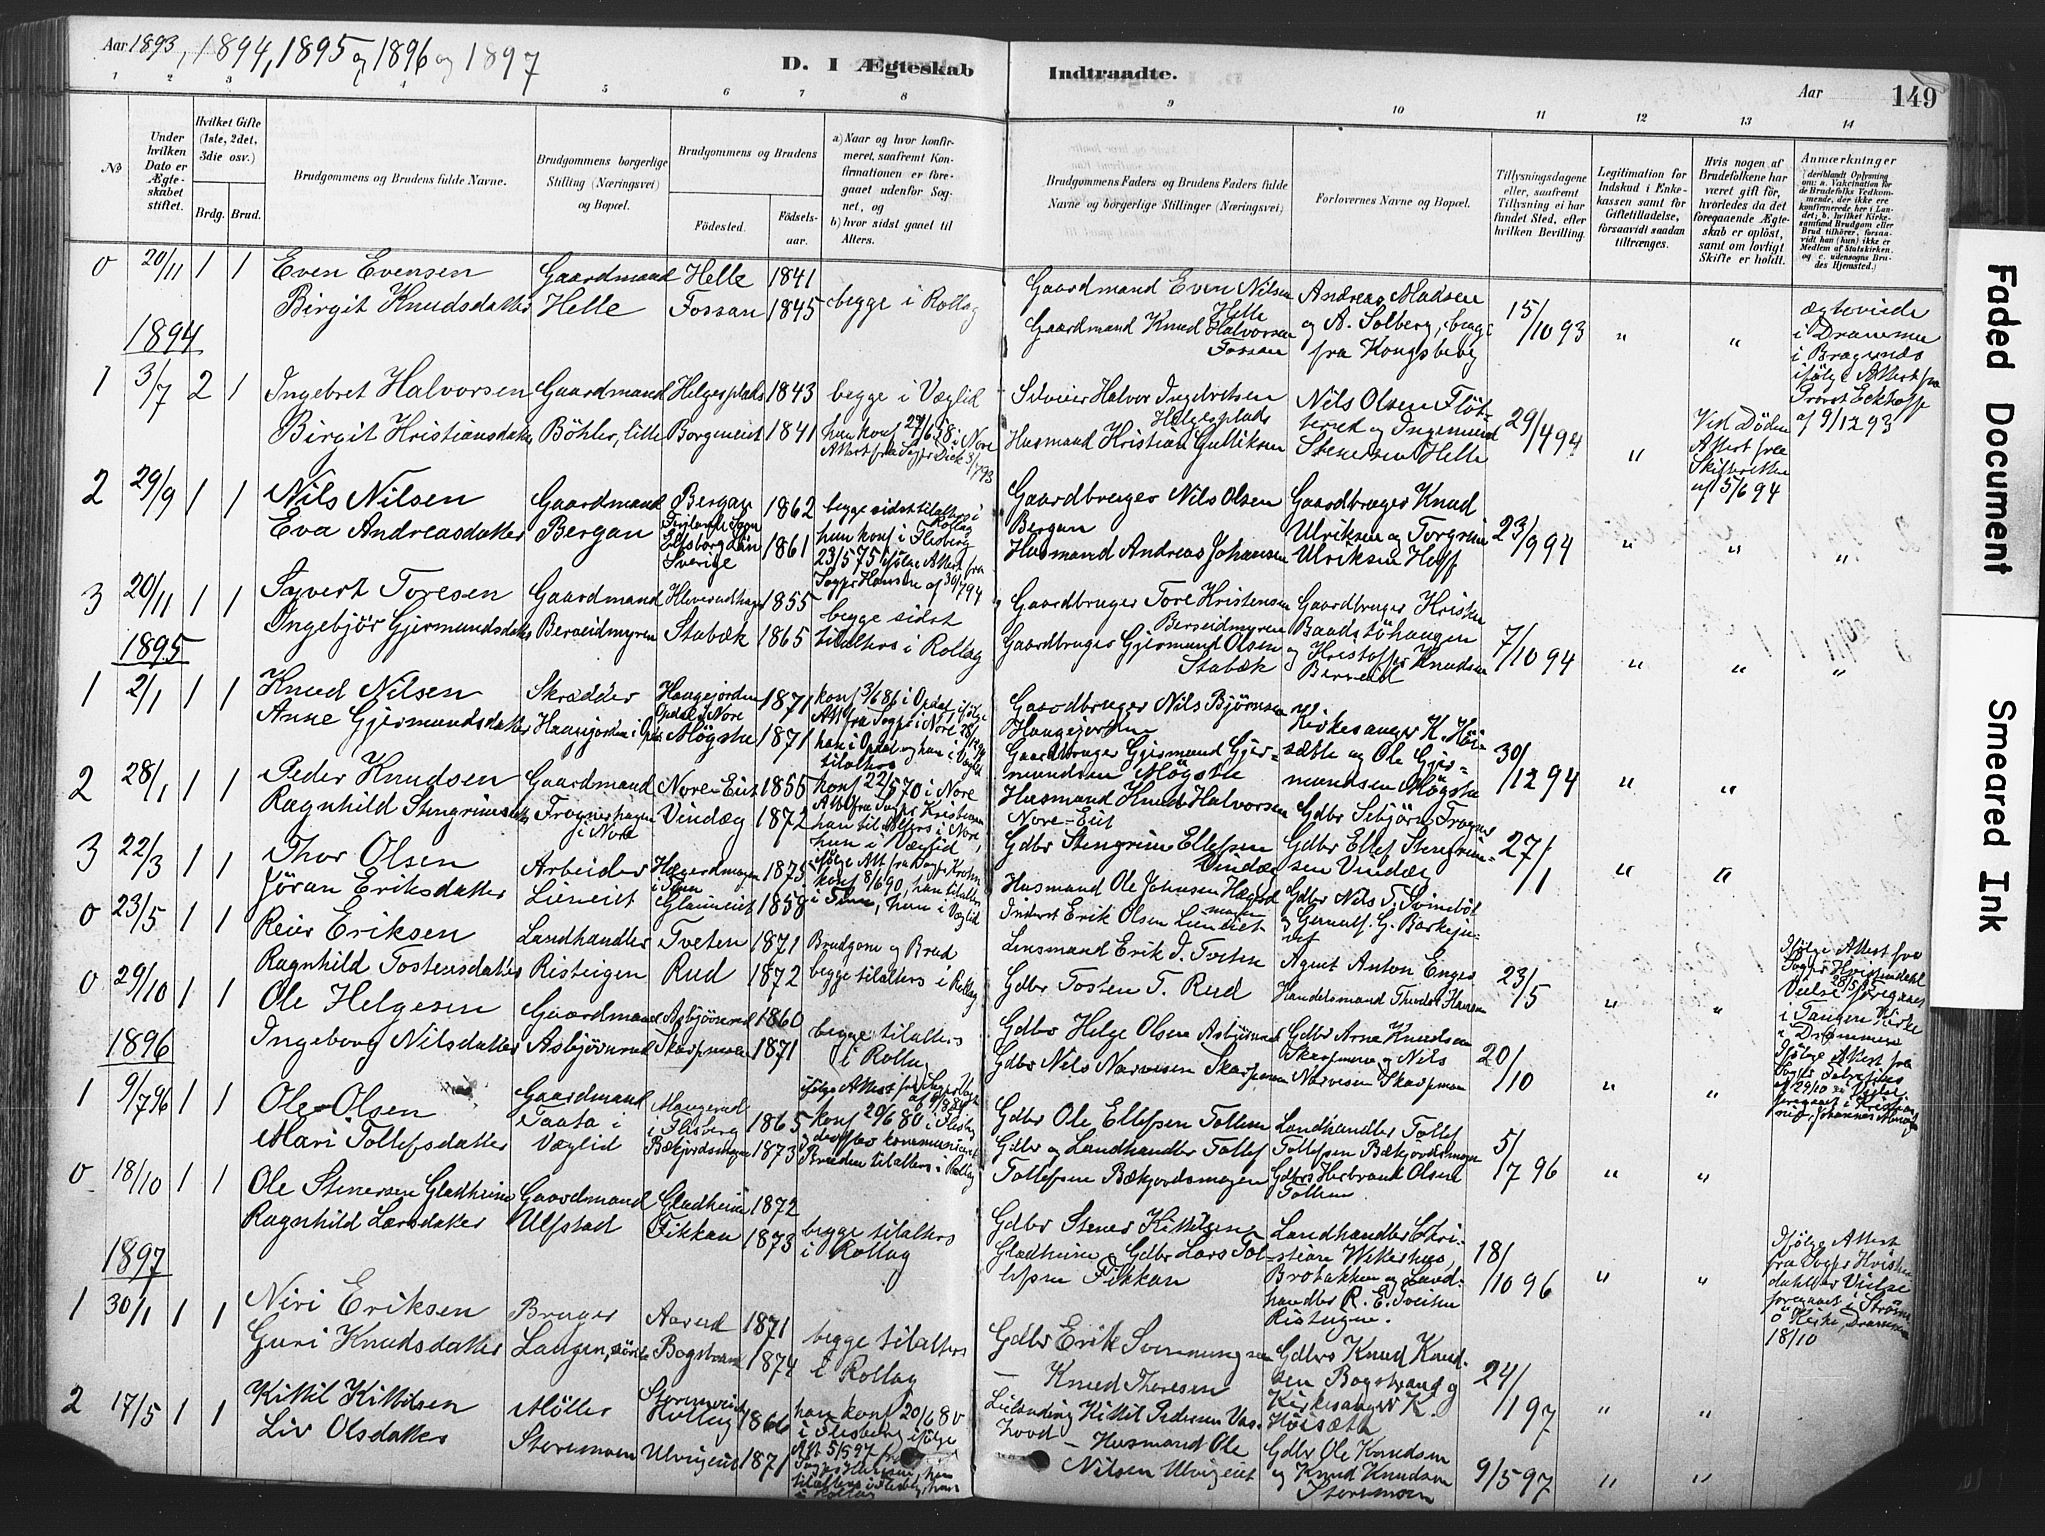 Aar 1893, 1894, 1895 og 1896 og 1897
D. I Ægteskab Indtraadte.
Aar 149
1 2 3 5 6 7 8 9 10 11 12 13 14
No
Under hvilken Dato er Ægteskabet stiftet.
Hvilket Gifte (1ste, 2det, 3die osv.)
Brdg. Brud.
Brudgommens og Brudens fulde Navne.
Brudgommens borgerlige Stilling (Næringsvei) og Bopæl.
Brudgommens og Brudens
Fødested. Fødselsaar.
a) Naar og hvor konfirmeret, saafremt Konfirmationen er foregaaet udenfor Sognet, og
b) hvor sidst gaaet til Alters.
Brudgommens Faders og Brudens Faders fulde Navne og borgerlige Stillinger (Næringsvei)
Forlovernes Navne og Bopæl.
Tillysningsdagene eller, saafremt Tillysning ei har fundet Sted, efter hvilken Bevilling.
Legitimation for Indskud i Enkekassen samt for Giftetilladelse, forsaavidt saadan tiltrænges.
Hvis nogen af Brudefolkene har været gift før, hvorledes da det foregaaende Ægteskab er opløst, samt om lovligt Skifte er holdt.
Anmærkninger (deriblandt Oplysning om: a. Vakcination for de Brudefolks Vedkommende, der ikke ere konfirmerede her i Landet; b. hvilket Kirkesamfund Brudgom eller Brud tilhører, forsaavidt han (hun) ikke er Medlem af Statskirken, og c. udensogns Brudes Hjemsted.)
0 20/11 1 1 Even Evensen Gaardmand Helle 1841
Birgit Knudsdatter Helle Fossan 1845 begge i Rollag
Gaardmand Even Nilsen Helle
Gaardmand Knud Halvorsen Fossan
Andreas Madsen og A. Solberg, begge fra Kongsberg
15/10 93 " "
i Drammen i Bragernes ifølge Attest fra Provst af 9/12 93
1894
1 3/7 2 1 Ingebret Halvorsen Gaardmand Helgesplads 1843 begge i Væglid
Birgit Kristiansdatter Böhler, lille Borgeneiet 1841 hun konf 27/6 58 i Nore
Attest fra Sogpr Dick 3/7 93
Halvor Ingebretsen Helgesplads
Husmand Kristian Gulliksen
Nils Olsen og Ingemund Stenersen Helle
29/4 94 "
Ved Döden Attest fra Skifteretten af 5/6 94
2 29/9 1 1 Nils Nilsen Gaardmand Bergan 1862 begge sidst tilalters i Rollag
Eva Andreasdatter Bergan Elfsborg Län Sverige 1861
hun konf i Flesberg 23/5 75 ifølge Attest fra Sogpr Hansen af 30/7 94
Gaardbruger Nils Olsen Bergan
Husmand Andreas Johansen
Gaardbruger Knud Ulriksen og Torgrim Ulriksen Hoff
23/9 94 " " "
3 20/11 1 1 Syvert Toresen Gaardmand 1855 begge sidst
Ingebjör Gjermundsdatter Berseidmyren Stabæk 1865 tilalters i Rollag
Gaardbruger Tore Kristensen Berseidmyren
Gaardbruger Gjermund Olsen Stabæk
Gaardbruger Kristen Baadstöhaugen og Kristoffer Knudsen Berseid
7/10 94 " " "
1895
1 2/1 1 1 Knud Nilsen Skrædder Haugejorden Opdal i Nore 1871
Anne Gjermundsdatter Haugejorden i Opdal Mögste 1871
konf 3/6 86 i Opdal ifølge Att fra Sogpr i Nore 28/12 94
han i Opdal og hun i Væglid tilalters
Gaardbruger Nils Björnsen Haugejorden
Gaardbruger Gjermund Gjermundsen Mögste
Kirkesanger K. Höisætte og Ole Gjermundsen Mögste
30/12 94 " "
2 28/1 1 1 Peder Knudsen Gaardmand Nore-Eiet 1855
Ragnhild Stengrimsdatter Frognerhagen i Nore Vindæg 1872
konf 22/5 70 i Nore Att fra Sogpr Kristensen
han til Alters i Nore, hun i Væglid
Husmand Knud Halvorsen Nore-Eiet
Gdbr Stengrim Ellefsen Vindæg
Gdbr Sebjörn Frogner
Gdbr Ellef Stengrimsen Vindæg
27/1 " "
3 22/3 1 1 Thor Olsen Arbeider i Tinn 1875
Jöran Eriksdatter Lieneiet 1858
ifølge Att fra Sogpr Krohn konf 8/6 90, han tilalters i Tinn, hun i Væglid
Husmand Ole Johnsen
Inderst Erik Olsen
Gdbr Nils T. Svinebøl og G.
0 23/5 1 1 Reier Eriksen Landhandler Tveten 1871 Brudgom og Brud
Ragnhild Tostensdatter Risteigen Rud 1872 begge tilalters i Rollag
Lensmand Erik I. Tveten
Gdbr Tosten T. Rud
Agent Anton Enger
Handelsmand Theodor Hansen
23/5 " "
Ifølge Attest fra Sogpr Kristendahl 28/5 95 Vielse foregaaet i Tangen Kirke i Drammen
0 29/10 1 1 Ole Helgesen Gaardmand Asbjörnrud 1860 begge tilalters
Ingeborg Nilsdatter Asbjörnrud Skarpmoen 1871 i Rollag
Gdbr Helge Olsen Asbjörnrud
Gdbr Nils Narvesen Skarpmoen
Gdbr Arne Knudsen Skarpmoen og Nils Narvesen Skarpmoen
20/10 " "
Ifølge Attest fra Sogpr af 29/10 er Vielse foregaaet i
1896
1 9/7 96 1 1 Ole Olsen Gaardmand i Flesberg 1865
Mari Tollefsdatter Taata i Væglid Bækjordsmogen 1873
ifølge Attest fra
konf 20/6 80 i Flesberg og derefter kommuniceret
Bruden tilalters i Rollag
Gdbr Ole Ellefsen Tollum
Gdbr og Landhandler Tollef Tollefsen Bækjordsmogen
Landhandler Tollef Tollefsen Bækjordsmogen
Gdbr Herbrand Olsen Tollum
5/7 96 " "
0 18/10 1 1 Ole Stenersen Gladheim Gaardmand Gladheim 1872
Ragnhild Larsdatter Ulfstad Fikkan 1873 begge tilalters i Rollag
Gdbr Stener Kittilsen Gladheim
Gdbr Lars Tollefsen Fikkan
Landhandler Christian Wikerhus, Brobakken og Landhandler R. E. Tveiten Risteigen.
18/10 96 " "
Ifølge Attest fra Sogpr Kristendahl er Vielse foregaaet i Strömsö Kirke, Drammen 18/10
1897
1 30/1 1 1 Niri Eriksen Bruger Aarud 1871 begge tilalters
Guri Knudsdatter Laugen, söndre Bogstrand 1874 i Rollag
Gdbr Erik Svenningsen
— Knud Thoresen
Gdbr Knud Knudsen Bogstrand og Kirkesanger K. Höisæth
24/1 97 " "
2 17/5 1 1 Kittil Kittilsen Möller Rollag 1866
Liv Olsdatter Storemoen Ulvigeiet 1871
han konf 20/6 80 i Flesberg ifølge Att 5/5 97 fra Sogpr
tilalters i Flesberg, hun i Rollag
Kittil Pedersen
— Husmand Ole Nilsen Ulvigeiet
Gdbr Ole Knudsen og Knud Knudsen Storemoen
9/5 97 " "
Faded Document
Smeared Ink